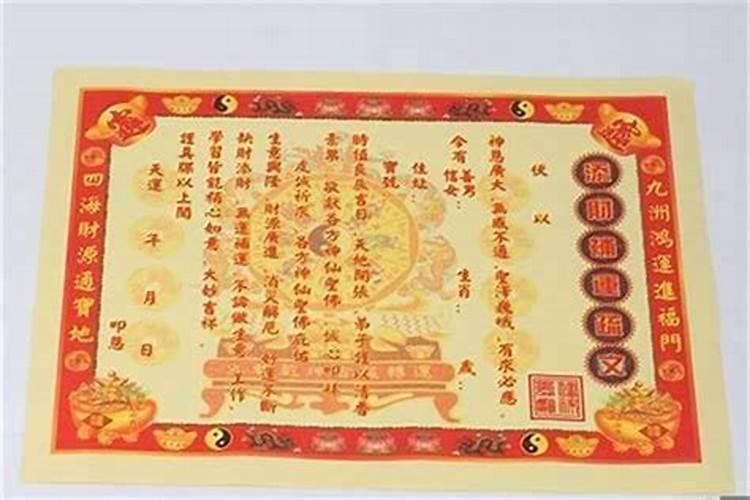 九洲鴻運進福門
添財補運疏文
伏以
神恩廣大 無感不通 聖澤巍峨 有求必應
今有 善男 信女： 生肖： 歲：
住址：
寶號
時值良辰吉日 天地開張 弟子僅以清香
素果 敬獻各方神仙聖佛 誠心叩拜
虔誠祈求 各方神仙聖佛庇佑
生意興隆 財源廣進 消災解厄 好運不斷
缺財添財 無運補運 不論做生意、工作、
學習皆能稱心如意 大妙吉祥
謹具疏以上聞
天運 年 月 日 叩懇
四海財源通寶地